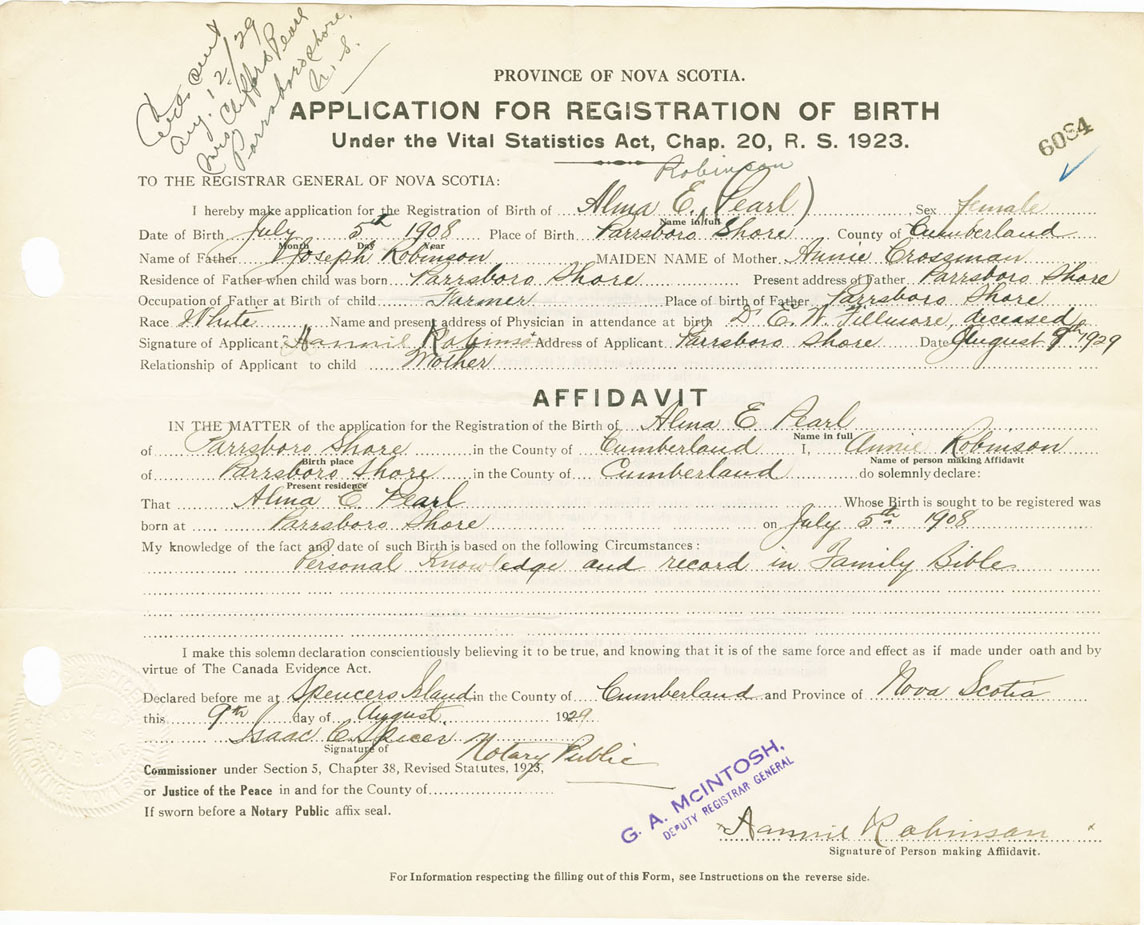 Cert sent
Aug. 12/29
Mrs Clifford Pearl
Parrsboro Shore.
N. S.
PROVINCE OF NOVA SCOTIA.
APPLICATION FOR REGISTRATION OF BIRTH
Under the Vital Statistics Act, Chap. 20, R. S. 1923.
6084
Robinson
TO THE REGISTRAR GENERAL OF NOVA SCOTIA:
I hereby make application for the Registration of Birth of Alma E. (Pearl) Sex female
Name in full
Date of Birth July 5th 1908 Place of Birth Parrsboro Shore County of Cumberland
Month Day Year
Name of Father Joseph Robinson MAIDEN NAME of Mother Annie Crossman
Residence of Father when child was born Parrsboro Shore Present address of Father Parrsboro Shore
Occupation of Father at Birth of child Farmer Place of birth of Father Parrsboro Shore
Race White Name and present address of Physician in attendance at birth Dr E. W. Fillmore, deceased
Signature of Applicant Hannie Robinson Address of Applicant Parrsboro Shore Date August 9th 1929
Relationship of Applicant to child Mother
AFFIDAVIT
IN THE MATTER of the application for the Registration of the Birth of Alma E Pearl
Name in full
of Parrsboro Shore in the County of Cumberland I, Annie Robinson
Birth place Name of person making Affidavit
of Parrsboro Shore in the County of Cumberland do solemnly declare:
Present residence
That Alma E. Pearl Whose Birth is sought to be registered was
born at Parrsboro Shore on July 5th 1908
My knowledge of the fact and date of such Birth is based on the following Circumstances :
Personal Knowledge and record in Family Bible
I make this solemn declaration conscientiously believing it to be true, and knowing that it is of the same force and effect as if made under oath and by
virtue of The Canada Evidence Act.
Declared before me at Spencers Island in the County of Cumberland and Province of Nova Scotia
this 9th day of August 1929
Isaac C. Spicer Notary Public
Signature of
Commissioner under Section 5, Chapter 38, Revised Statutes, 1923,
or Justice of the Peace in and for the County of
If sworn before a Notary Public affix seal.
G. A. MCINTOSH.
DEPUTY REGISTRAR GENERAL
x Hannie Robinson x
Signature of Person making Affiidavit.
For Information respecting the filling out of this Form, see Instructions on the reverse side.